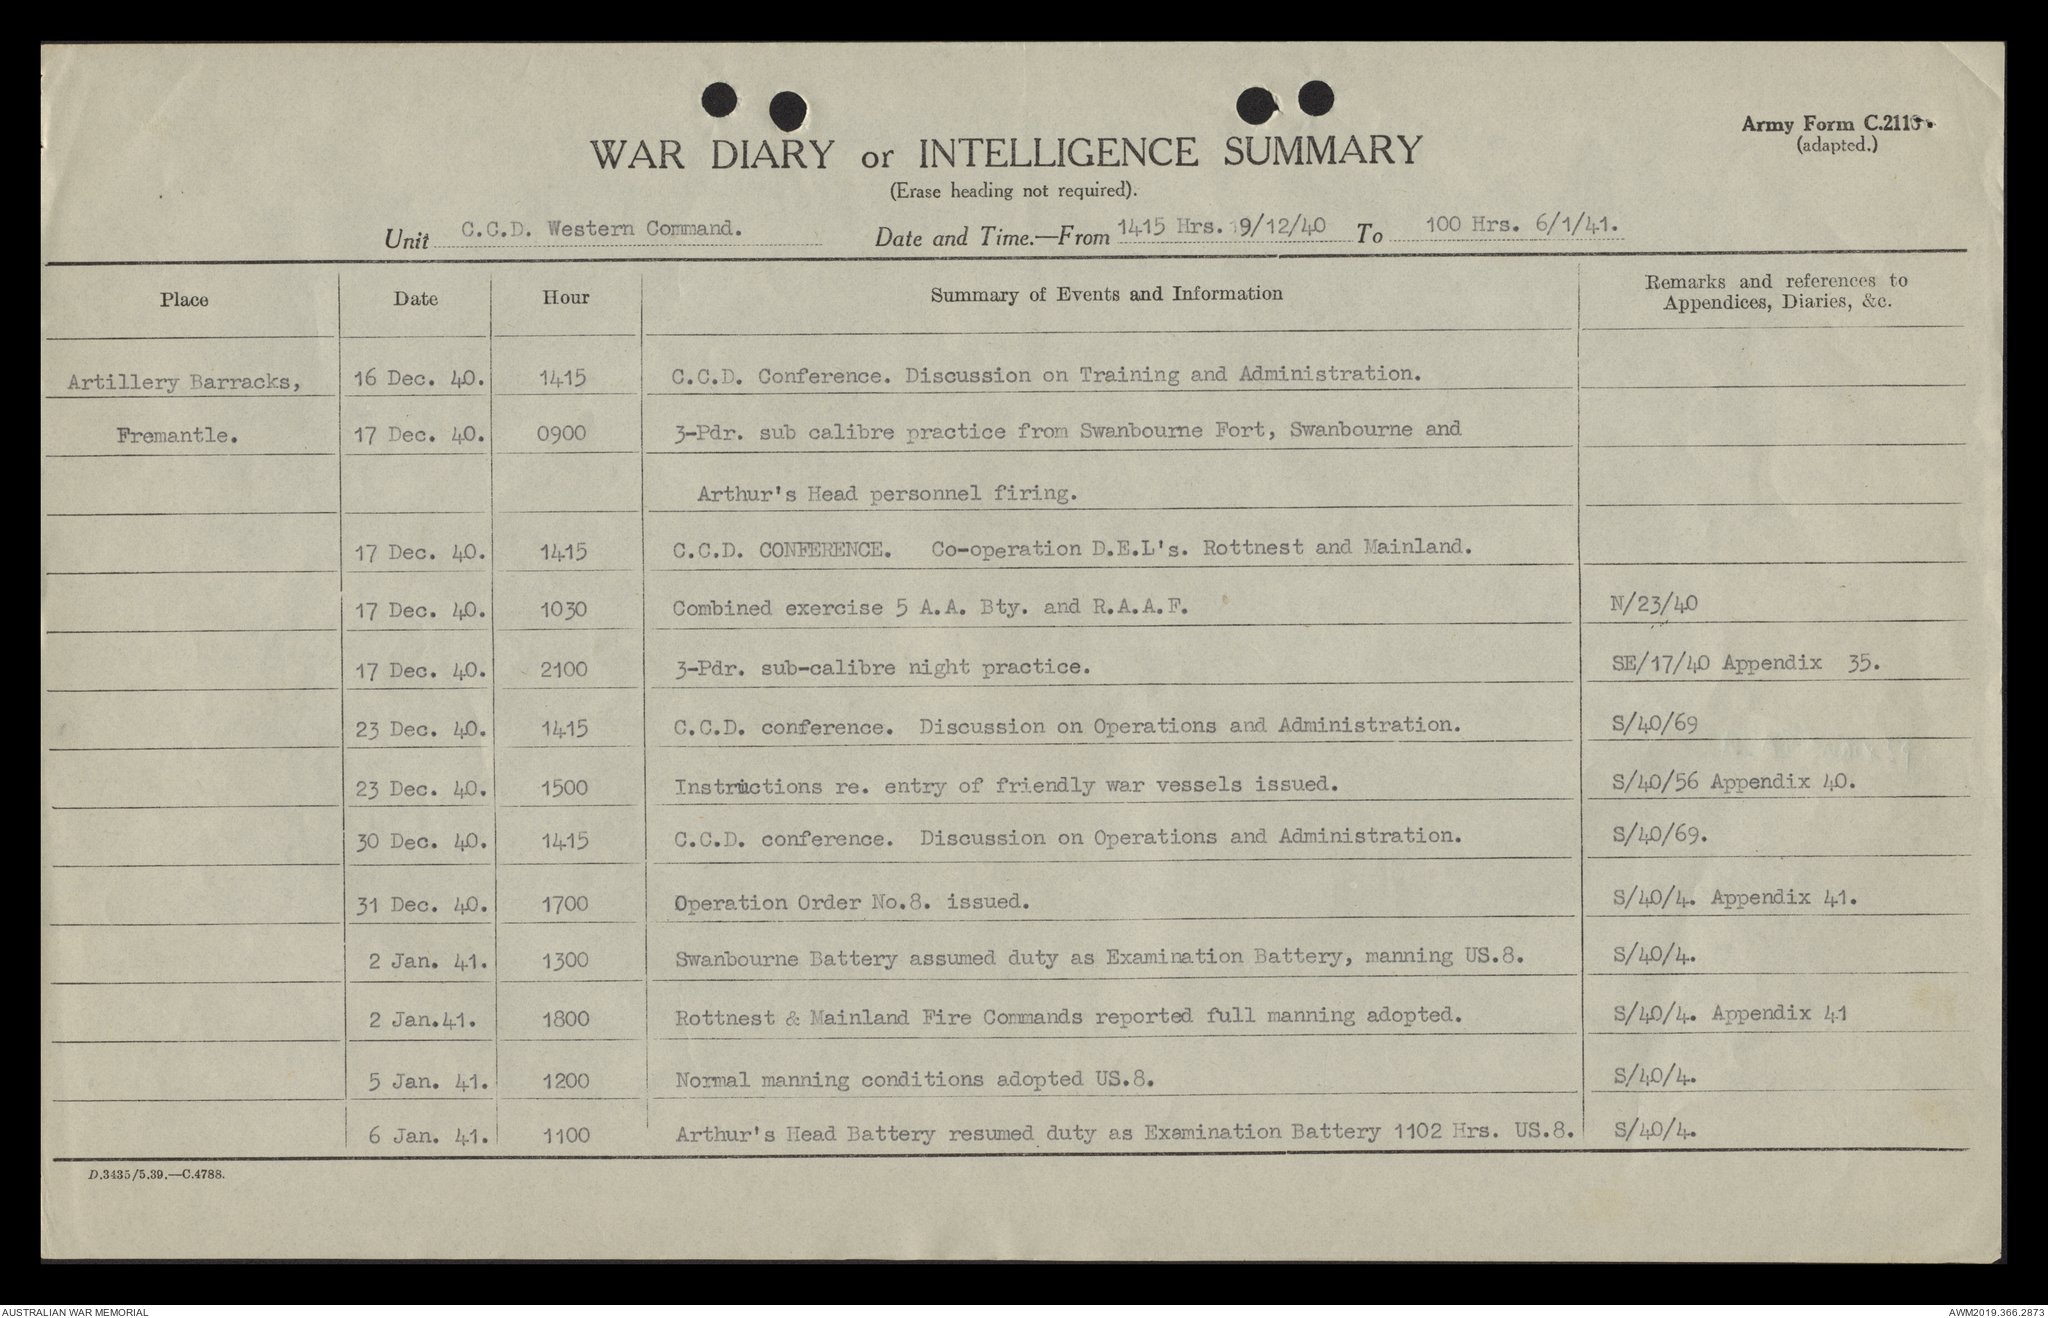 Army Form C.2118.
(adapted.)
WAR DIARY or INTELLIGENCE SUMMARY
(Erase heading not required).
Unit C.C.D. Western Command. Date and Time.—From 1415 Hrs. 9/12/40 To 100 Hrs. 6/1/41.
Place Date Hour Summary of Events and Information Remarks and references to
Appendices, Diaries, &c.
Artillery Barracks, 16 Dec. 40. 1415 C.C.D. Conference. Discussion on Training and Administration.
Fremantle. 17 Dec. 40. 0900 3-Pdr. sub calibre practice from Swanbourne Fort, Swanbourne and
Arthur's Head personnel firing.
17 Dec. 40. 1415 C.C.D. CONFERENCE. Co-operation D.E.L's. Rottnest and Mainland.
17 Dec. 40. 1030 Combined exercise 5 A.A. Bty. and R.A.A.F. N/23/40
17 Dec. 40. 2100 3-Pdr. sub-calibre night practice. SE/17/40 Appendix 35.
23 Dec. 40. 1415 C.C.D. conference. Discussion on Operations and Administration. S/40/69
23 Dec. 40. 1500 Instructions re. entry of friendly war vessels issued. S/40/56 Appendix 40.
30 Dec. 40. 1415 C.C.D. conference. Discussion on Operations and Administration. S/40/69.
31 Dec. 40. 1700 Operation Order No.8. issued. S/40/4. Appendix 41.
2 Jan. 41. 1300 Swanbourne Battery assumed duty as Examination Battery, manning US.8. S/40/4.
2 Jan.41. 1800 Rottnest & Mainland Fire Commands reported full manning adopted. S/40/4. Appendix 41
5 Jan. 41. 1200 Normal manning conditions adopted US.8. S/40/4.
6 Jan. 41. 1100 Arthur's Head Battery resumed duty as Examination Battery 1102 Hrs. US.8. S/40/4.
D.3435/5.39.—C.4788.
AUSTRALIAN WAR MEMORIAL AWM2019.366.2873